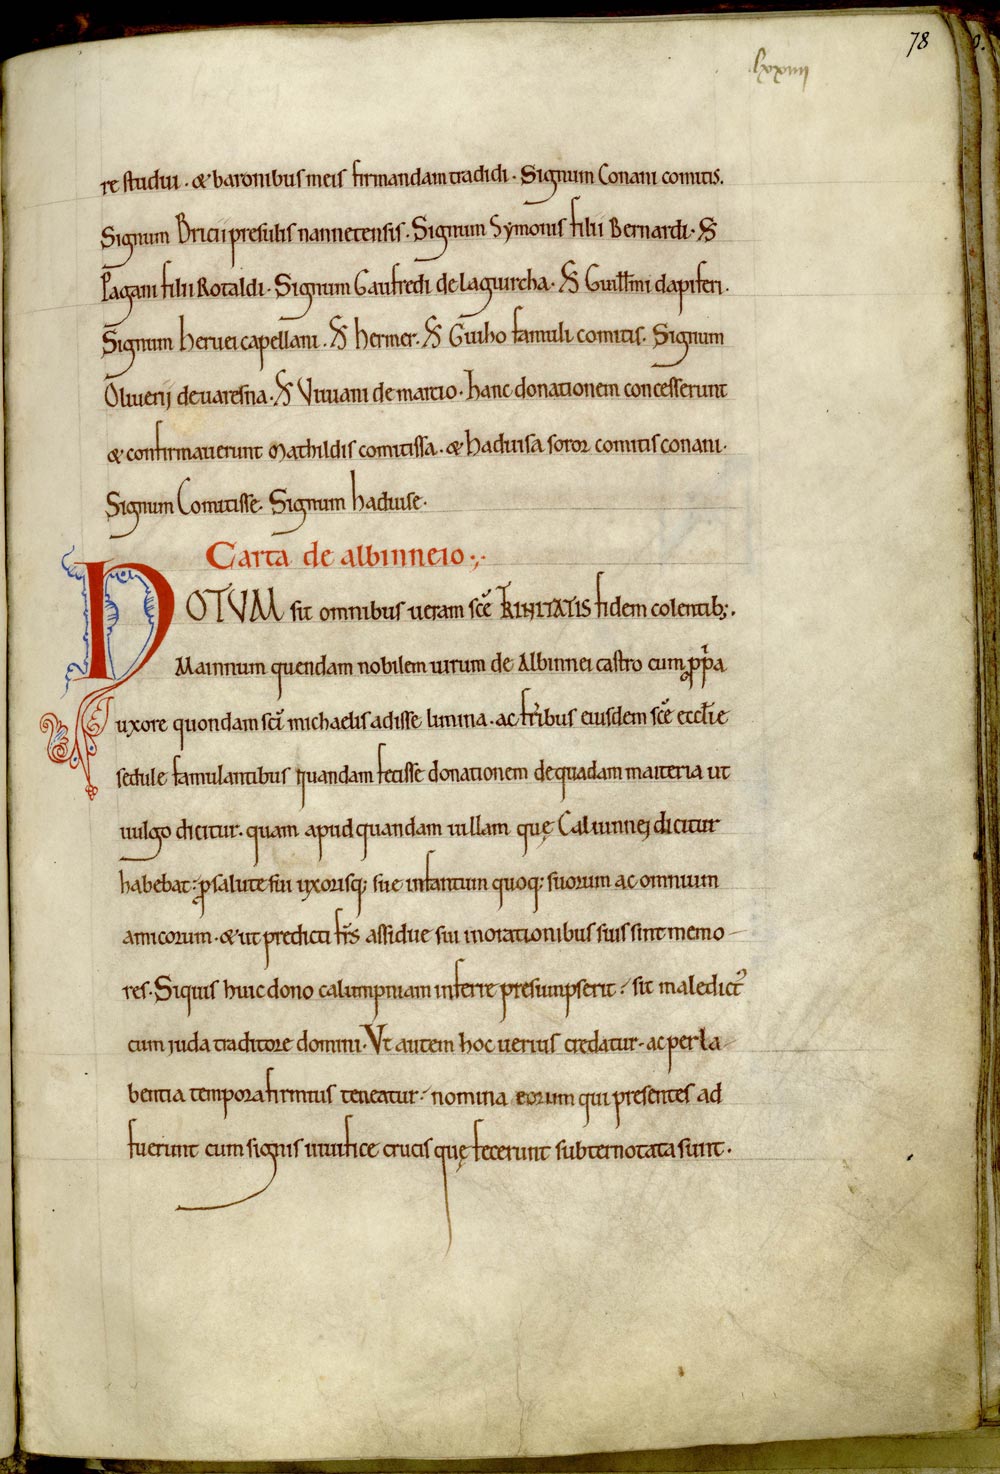 78
lxxiiii
re studui · & baronibus meis firmandam tradidi · Signum Conani comitis.
Signum Bricii presulis nannetensis · Signum Symonis filii Bernardi · S
Pagani filii Rotaldi · Signum Gaufredi de laguircha · S Guillmi dapiferi ·
Signum heruei capellani · S hermer · S Guiho famuli comitis · Signum
Oliuerij de uaresna · S Viuiani de marcio · hanc donationem concesserunt
& confirmauerunt Mathildis comitissa · & haduisa soror comitis conani ·
Signum Comitisse · Signum haduise ·
Carta de albinneio ·,·
NOTVM sit omnibus ueram scē TRINITATIS fidem colentib; ·
Mainnum quendam nobilem uirum de Albinnei castro cum ꝓpͥa
uxore quondam scī michaelis adisse limina · ac fr̄ibus eiusdem scē eccl̄ie
sedule famulantibus quandam fecisse donationem de quadam maiteria ut
uulgo dicitur · quam apud quandam uillam quę Caluinnei dicitur
habebat · ꝓ salute sui uxorisq; sue infantum quoq; suorum ac omnium
amicorum · & ut predicti fr̄s assidue sui in orationibus suis sint memo-
res · Siquis huic dono calumpniam inferre presumpserit · sit maledict᾽
cum iuda traditore domini · Vt autem hoc uerius credatur · ac per la-
bentia tempora firmius teneatur · nomina eorum qui presentes ad
fuerunt cum signis uiuifice crucis quę fecerunt subternotata sunt ·